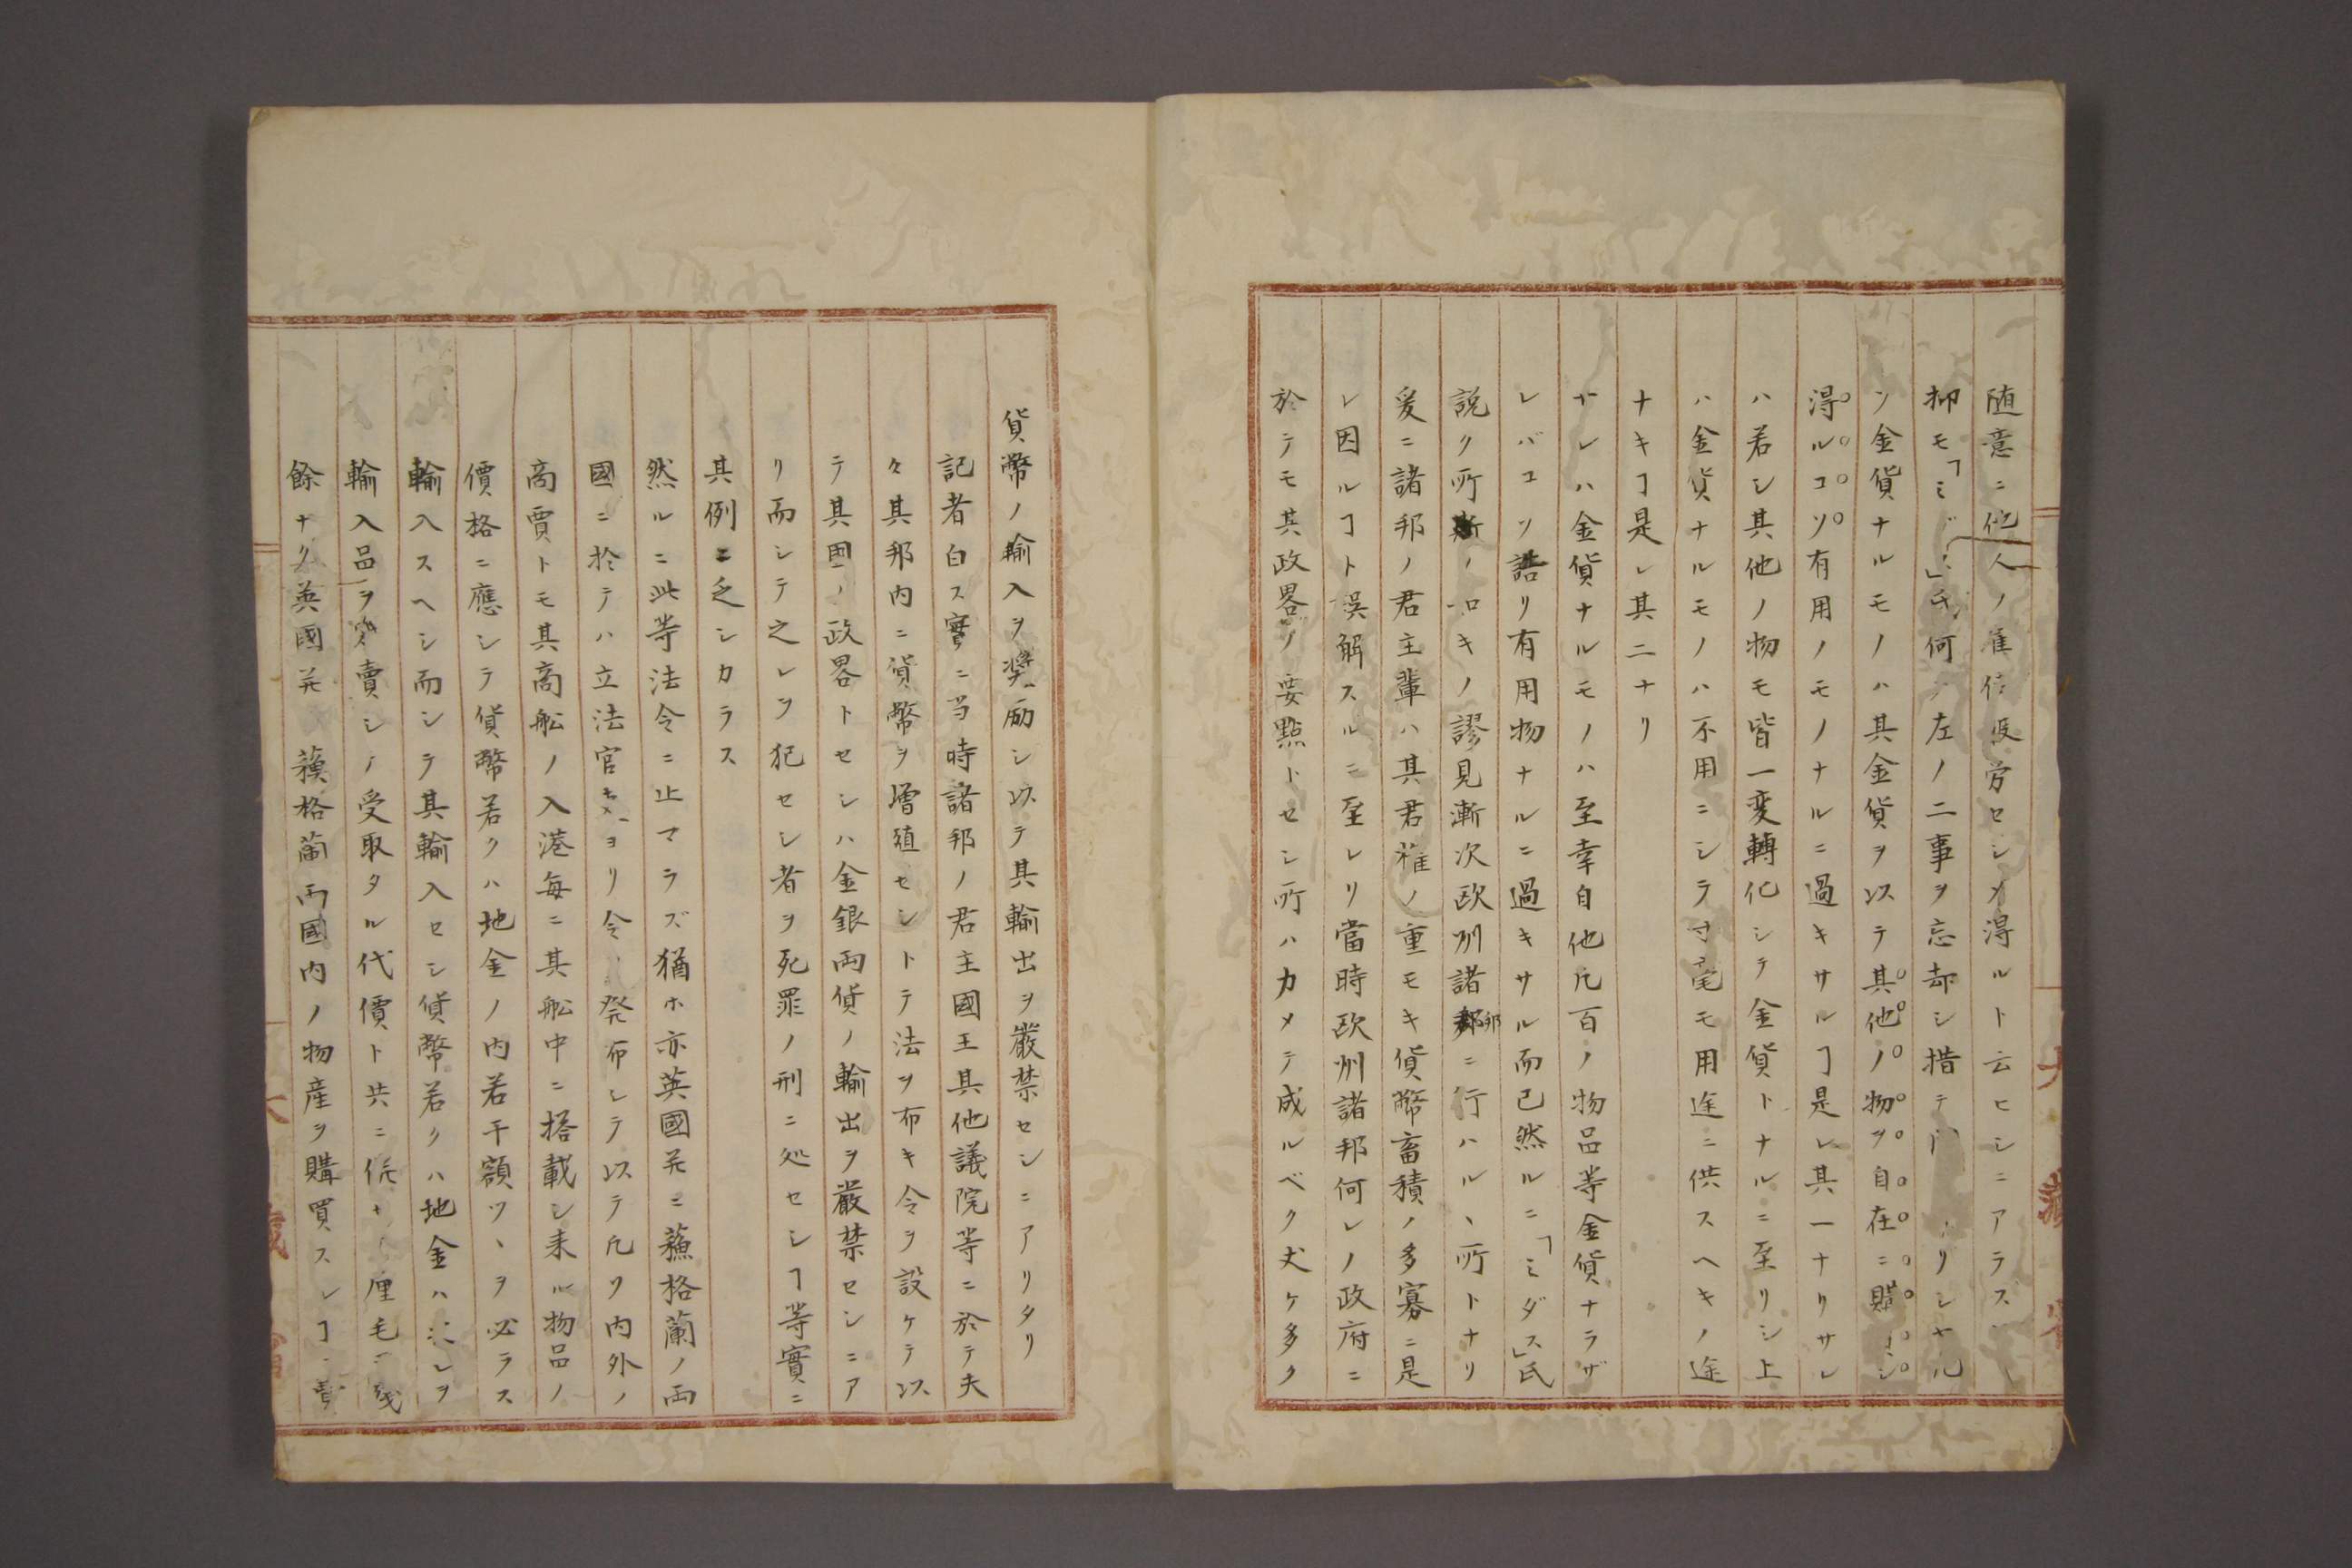 随意ニ他人ノ隹役労セシメ得ルト云ヒシニアラス
抑モ「ミ」氏何左ノ二事ヲ忘却シ措テリシヤ凡
ソ金貨ナルモノハ其金貨ヲ以テ其他ノ物ヲ自在ニ購シ
得ルコソ有用ノモノナルニ過キサルヿ是レ其一ナリサレ
ハ若シ其他ノ物モ皆一変轉化シテ金貨トナルニ至リシ上
ハ金貨ナルモノハ不用ニシラ寸毫モ用途ニ供スヘキノ途
ナキヿ是レ其二ナリ
サレハ金貨ナルモノハ至幸自他凡百ノ物品等金貨ナラザ
レバコソ誥リ有用物ナルニ過キサル而已然ルニ「ミダス」氏
説ク所斯ノ如キノ謬見漸次欧洲諸邦ニ行ハルヽ所トナリ
爰ニ諸邦ノ君主輩ハ其君権ノ重モキ貨幣畜積ノ多寡ニ是
レ因ルヿト誤解スルニ至レリ當時欧洲諸邦何レノ政府ニ
於テモ其政畧ノ要點トセシ所ハカメテ成ルベク丈ケ多ク
貨幣ノ輸入ヲ奨励シ以テ其輸出ヲ嚴禁セシニアリタリ
記者白ス實ニ当時諸邦ノ君主國王其他議院等ニ於テ夫
々其邦内ニ貨幣ヲ増殖セシトテ法ヲ布キ令ヲ設ケテ以
テ其国ノ政畧トセシハ金銀両貨ノ輸出ヲ嚴禁セシニア
リ而シテ之レヲ犯セシ者ヲ死罪ノ刑ニ処セシヿ等實ニ
其例ニ乏シカラス
然ルニ此等法令ニ止マラズ猶ホ亦英國并ニ蘓格蘭ノ両
國ニ於テハ立法官ヨリ令發布シテ以テ凡ソ内外ノ
商賈トモ其商舩ノ入港毎ニ其舩中ニ搭載シ来ル物品ノ
價格ニ應シテ貨幣若クハ地金ノ内若干額ツヽヲ必ラス
輸入スヘシ而シテ其輸入セシ貨幣若クハ地金ハレヲ
輸入品ヲ賣シ受取タル代價ト共ニ厘毛残
餘ナク英國并蘓格蘭両國内ノ物産ヲ購買スレヿ